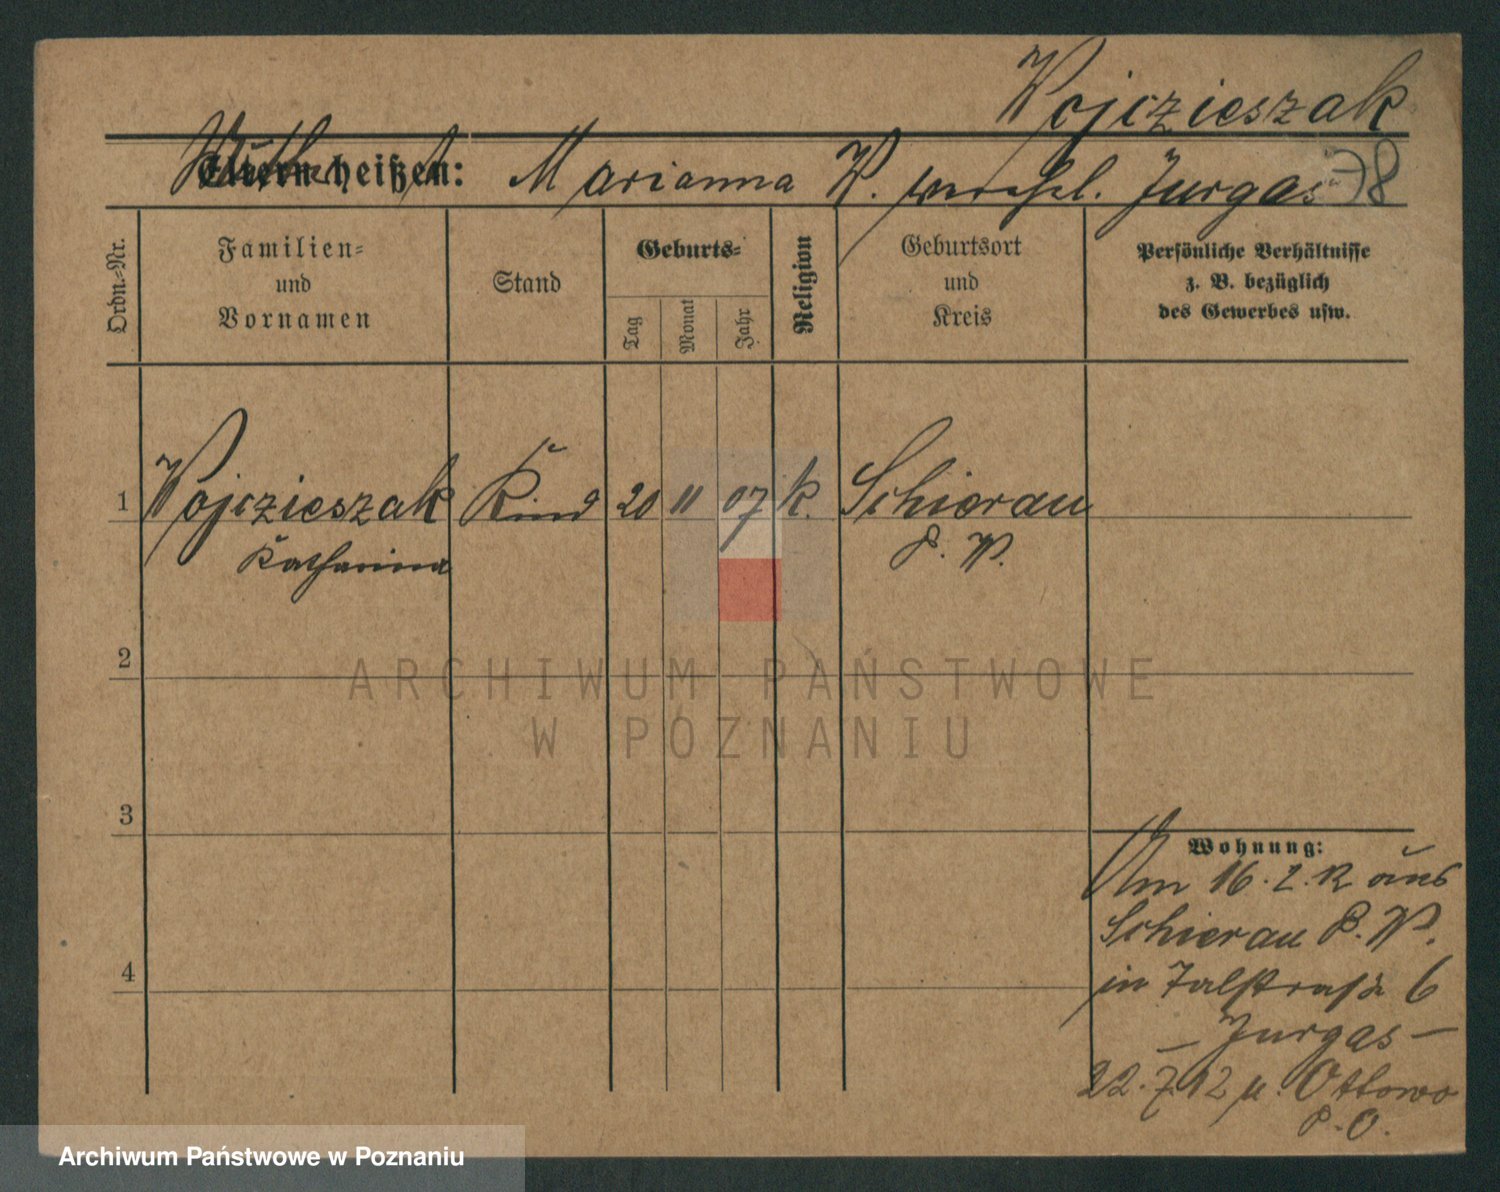 Wojczieszak
Eltern heißen: Marianna W. verehel. Jurgas 78
Ordn.-Nr.
Familien-
und
Vornamen
Stand
Geburts-
Tag
Monat
Jahr
Religion
Geburtsort
und
Kreis
Persönliche Verhältnisse
z. B. bezüglich
des Gewerbes usw.
1 Wojczieszak Kind 20 11 07 k. Schierau
Katharina P. W.
2
3
4
Wohnung:
Am 16. 2. 12 aus
Schierau P. W.
in Talstraße 6
— Jurgas —
22. 7. 12 n. Otlowo
P. O.
ARCHIWUM PAŃSTWOWE
W POZNANIU
Archiwum Państwowe w Poznaniu